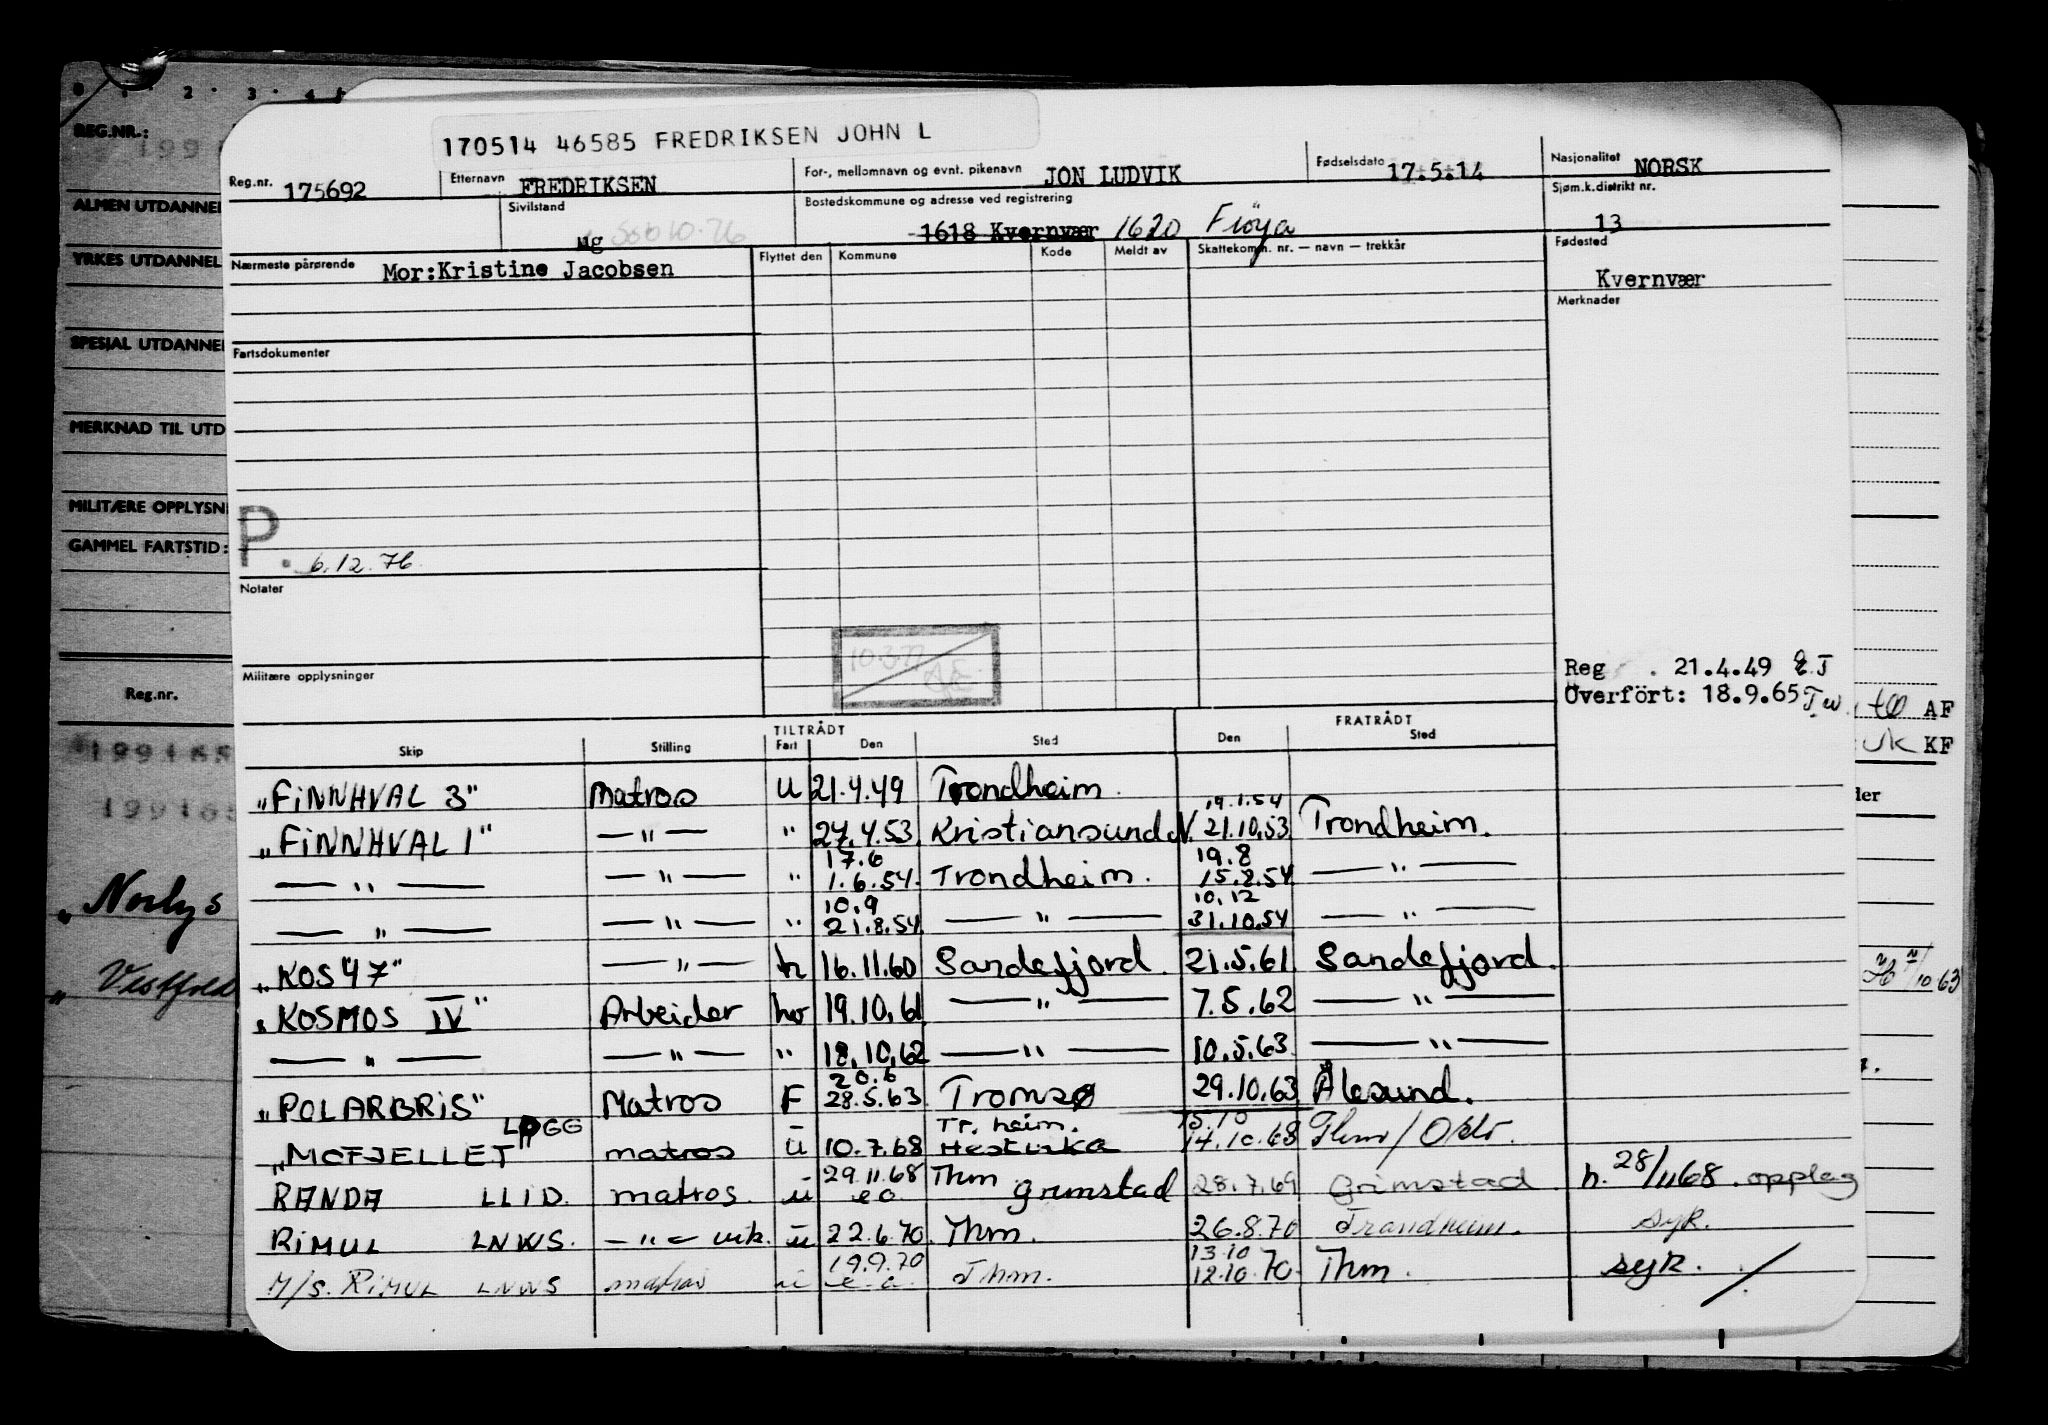 0 1 2 3 4 5
REG.NR.:
ALMEN UTDANNEL
YRKES UTDANNEL
SPESIAL UTDANNEL
MERKNAD TIL UTD
MILITÆRE OPPLYSN
GAMMEL FARTSTID:
Reg.nr.
199165
199165
"Norlys
"Vestfold
170514 46585 FREDRIKSEN JOHN L
Reg.nr. 175692 Etternavn FREDRIKSEN For-, mellomnavn og evnt. pikenavn JON LUDVIK Fødselsdato 17.5.14 Nasjonalitet NORSK
Sivilstand ug Bostedskommune og adresse ved registrering 1618 Kvernvær 1620 Fröya Sjøm.k.distrikt nr. 13
Nærmeste pårørende Mor:Kristine Jacobsen Flyttet den Kommune Kode Meldt av Skattekomm. nr. — navn — trekkår Fødested
Kvernvær
Merknader
Fartsdokumenter
P. 6.12.76
Notater
10.3.77
Militære opplysninger
Reg . 21.4.49
Överfört: 18.9.65
AF
KF
TILTRÅDT FRATRÅDT
Skip Stilling Fart Den Sted Den Sted
"FINNHVAL 3" Matros U 21.4.49 Trondheim.
19.1.54
"FINNHVAL 1" — " — " 27.4.53 Kristiansund N. 21.10.53 Trondheim.
17.6 19.8
— " — — " — " 1.6.54. Trondheim. 15.8.54 — " —
10.9 10.12
— " — — " — " 21.8.54 — " — 31.10.54 — " —
"KOS 47" — " — h 16.11.60 Sandefjord. 21.5.61 Sandefjord.
"KOSMOS IV" Arbeider hv 19.10.61 — " — 7.5.62 — " —
— " — — " — " 18.10.62 — " — 10.5.63 — " —
20.6
"POLARBRIS" Matros F 28.5.63 Tromsø 29.10.63 Ålesund.
LDGG Tr. heim. 15.10
"MOFJELLET" matros u 10.7.68 14.10.68 Thm/
29.11.68 Thm
RANDA LLID. matros. u e o Grimstad 28.7.69 Grimstad h. 28/11 68. opplag
RIMUL LNWS. — " — vik. u 22.6.70 Thm. 26.8.70 Trondheim. syk.
19.9.70 13.10
M/S. RIMUL LNWS matros u Thm. 12.10.70 Thm. syk.
10 63